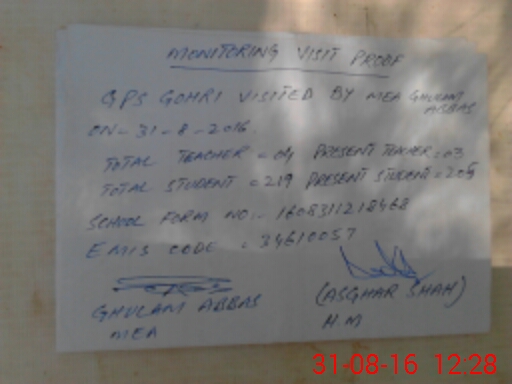 MONITORING VISIT PROOF
GPS GOHRI VISITED BY MEA GHULAM
ABBAS
ON - 31 - 8 - 2016.
TOTAL TEACHER = 04 PRESENT TEACHER = 03
TOTAL STUDENT = 219 PRESENT STUDENT = 205
SCHOOL FORM NO:- 1608311218468
EMIS CODE = 34610057
GHULAM ABBAS
MEA
(ASGHAR SHAH)
H.M
31-08-16 12:28